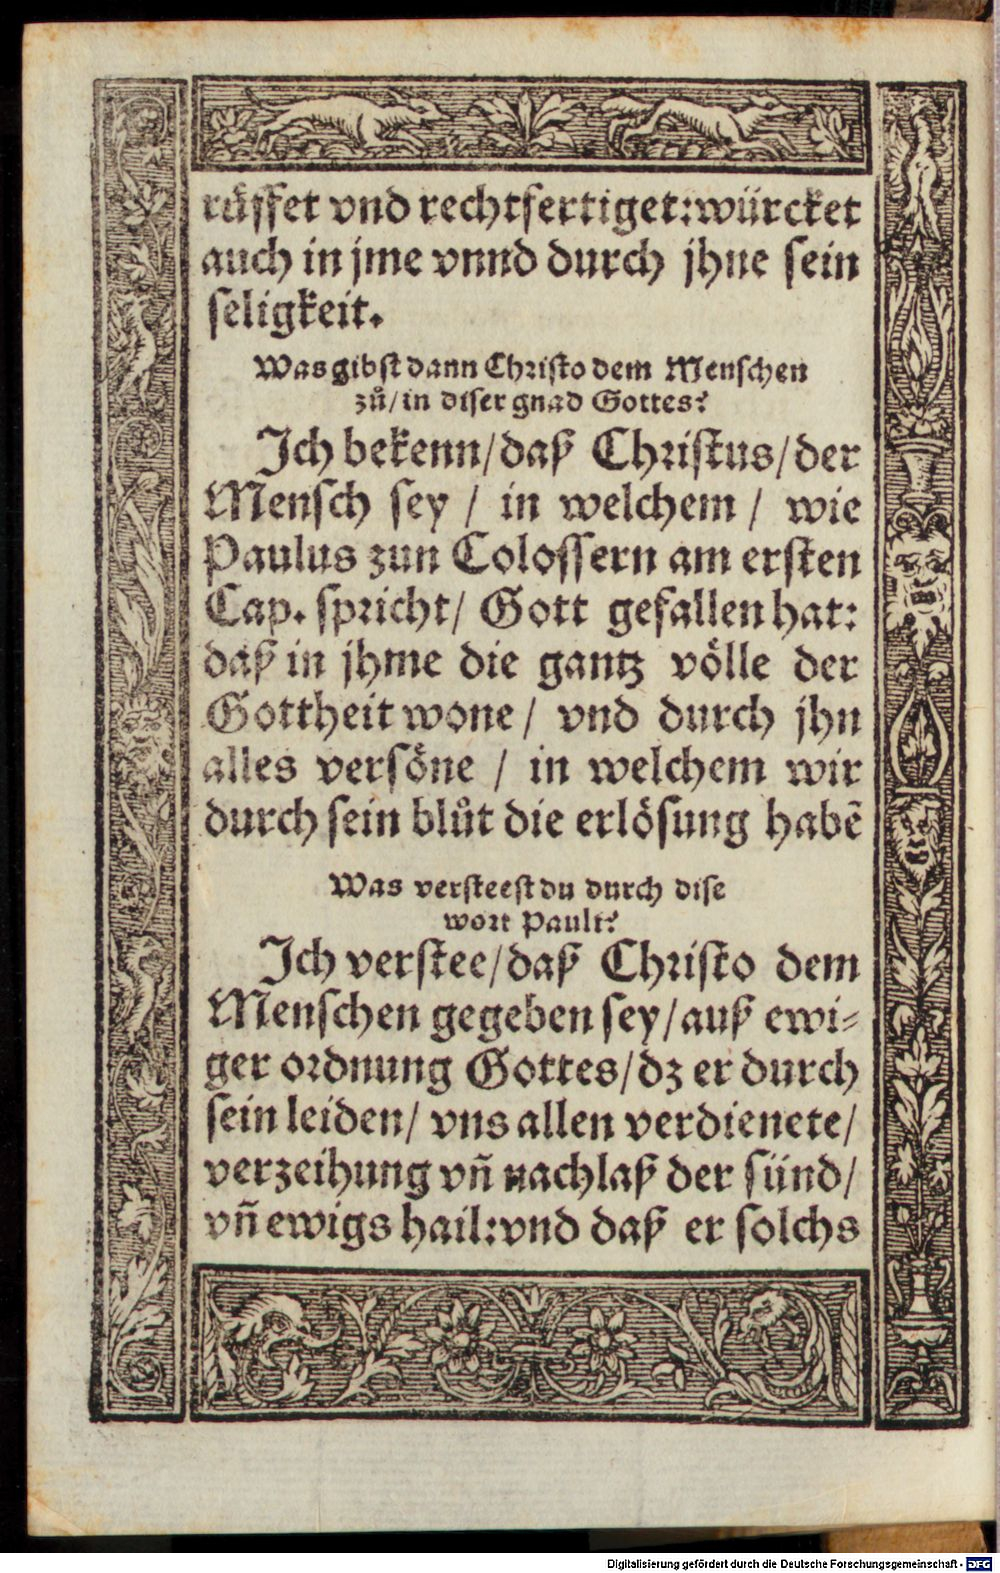 růffet vnd rechtfertiget: würcket
auch in jme vnnd durch jhne sein
seligkeit.
Was gibst dann Christo dem Menschen
zů/ in diser gnad Gottes?
Ich bekenn/ daß Christus/ der
Mensch sey / in welchem / wie
Paulus zun Colossern am ersten
Cap. spricht/ Gott gefallen hat:
daß in jhme die gantz völle der
Gottheit wone / vnd durch jhn
alles versöne / in welchem wir
durch sein blůt die erlösung habē
Was versteest du durch dise
wort Pauli?
Ich verstee/ daß Christo dem
Menschen gegeben sey/ auß ewi-
ger ordnung Gottes/ dz er durch
sein leiden/ vns allen verdienete/
verzeihung vñ nachlaß der sünd/
vñ ewigs hail: vnd daß er solchs
Digitalisierung gefördert durch die Deutsche Forschungsgemeinschaft - DFG